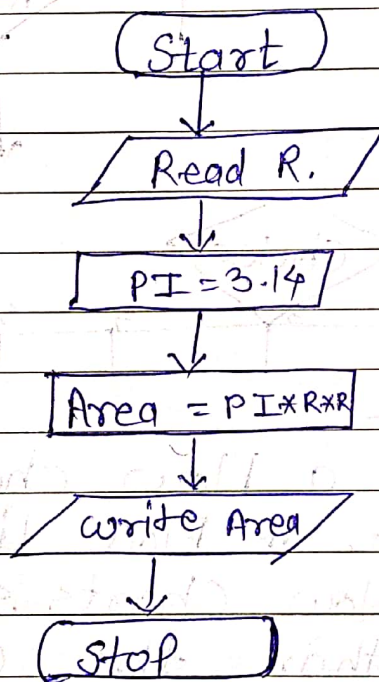 Start
Read R.
PI = 3.14
Area = PI*R*R
write Area
Stop